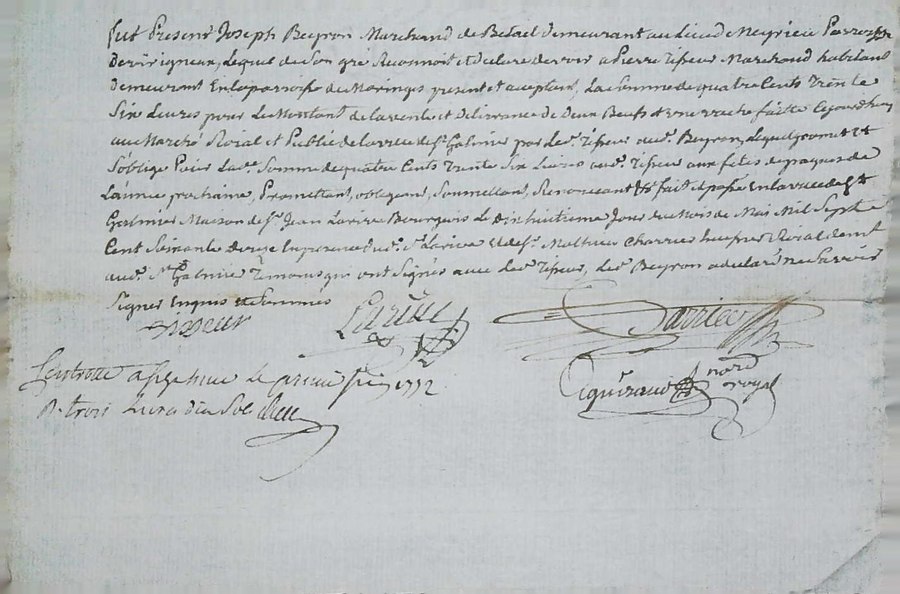 fut Present Joseph Beyron Marchand de Betail demeurant au lieu de Meyrieu Parroisse
de virigneux, lequel de son gré Reconnoit et declare devoir a Pierre Tisseur Marchand habitant
demeurant En la paroisse de Maringes present et acceptant, La Somme de quatre Cents Trente
Six Livres pour le Montant de la vente et delivrance de Deux Boeufs et une vache faitte Cejourdhuy
au Marché Roial et Public de la ville de St Galmier par led. Tisseur aud. Beyron, lequel promet et
S'oblige Paier lad.e Somme de quatre Cents Trente Six Livres aud. Tisseur aux fetes de paques de
L'année prochaine, Promettant, obligeant, Soumettant, Renonceant &c fait et passé En la ville de St
Galmier Maison de Sr Jean Larive Bourgeois Le Dix huitieme Jour du Mois de Mai Mil Sept
Cent Soixante Douze En presence dud. Sr Larive et de Sr Mathieu Charrier huissier Roial demt
aud. St Galmier Temoins qui ont Signés avec led. Tisseur, led. Beyron a declaré ne Scavoir
Signer Enquis et Sommés
tisseur Larive
nore royal
Controllé a St Galmier le 1772
R. trois Livres dix Sols